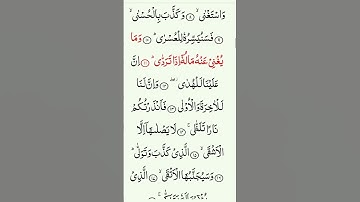 وَاسْتَغْنٰىۙ ﴿۸﴾ وَكَذَّبَ بِالْحُسْنٰىۙ
﴿۹﴾ فَسَنُيَسِّرُهٗ لِلْعُسْرٰىؕ ﴿۱۰﴾ وَمَا
يُغْنِىْ عَنْهُ مَالُهٗۤ اِذَا تَرَدّٰىؕ ﴿۱۱﴾ اِنَّ
عَلَيْنَا لَلْهُدٰىؗۖ ﴿۱۲﴾ وَاِنَّ لَنَا
لَلْاٰخِرَةَ وَالْاُوْلٰى ﴿۱۳﴾ فَاَنْذَرْتُكُمْ
نَارًا تَلَظّٰىۚ ﴿۱۴﴾ لَا يَصْلٰٮهَاۤ اِلَّا
الْاَشْقَىۙ ﴿۱۵﴾ الَّذِىْ كَذَّبَ وَتَوَلّٰىؕ
﴿۱۶﴾ وَسَيُجَنَّبُهَا الْاَتْقَىۙ ﴿۱۷﴾ الَّذِىْ